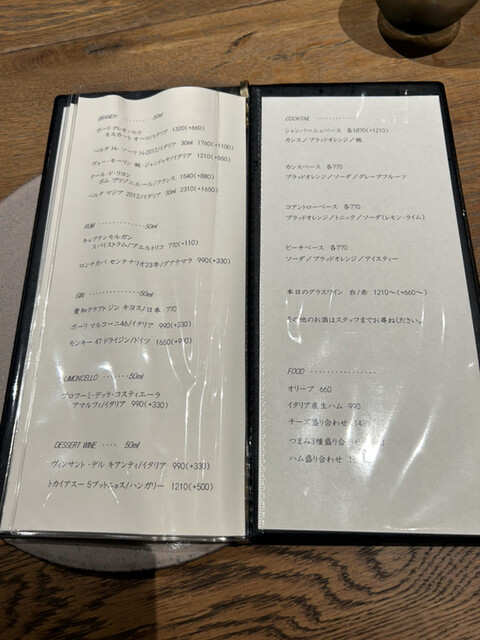 BRANDY ............50ml
ポーリ グレモンペラ
モスカート オーロ/イタリア 1320(+660)
ベルタ トレ・ソーリ トレ 2012/イタリア 30ml 1760(+1100)
ヴュー・モーリン 桃・ジャンドゥヤ/イタリア 1210(+550)
クール・ド・リヨン
ポム プリゾニエール/フランス 1540(+880)
ベルタ マジア 2012/イタリア 30ml 2310(+1650)
RUM ..............50ml
キャプテンモルガン
スパイストラム/プエルトリコ 770(+110)
ロンサカパ センテナリオ23年/グアテマラ 990(+330)
GIN ..............50ml
愛知クラフトジン キヨス/日本 770
ポーリ マルコーニ46/イタリア 990(+330)
モンキー 47ドライジン/ドイツ 1650(+990)
LIMONCELLO ........50ml
プロフーミ・デッラ・コスティエーラ
アマルフィ/イタリア 990(+330)
DESSERT WINE .... 50ml
ヴィンサント・デル キアンティ/イタリア 990(+330)
トカイアスー 5プットニョス/ハンガリー 1210(+500)
COCKTAIL ............
シャンパーニュベース 各1870(+1210)
カシス/ブラッドオレンジ/桃
カシスベース 各770
ブラッドオレンジ/ソーダ/グレープフルーツ
コアントローベース 各770
ブラッドオレンジ/トニック/ソーダ(レモン・ライム)
ピーチベース 各770
ソーダ/ブラッドオレンジ/アイスティー
本日のグラスワイン 白/赤 1210〜(+660〜)
その他のお酒はスタッフまでお尋ねください。
FOOD ................
オリーブ 660
イタリア産生ハム 990
チーズ盛り合わせ
つまみ3種盛り合わせ
ハム盛り合わせ